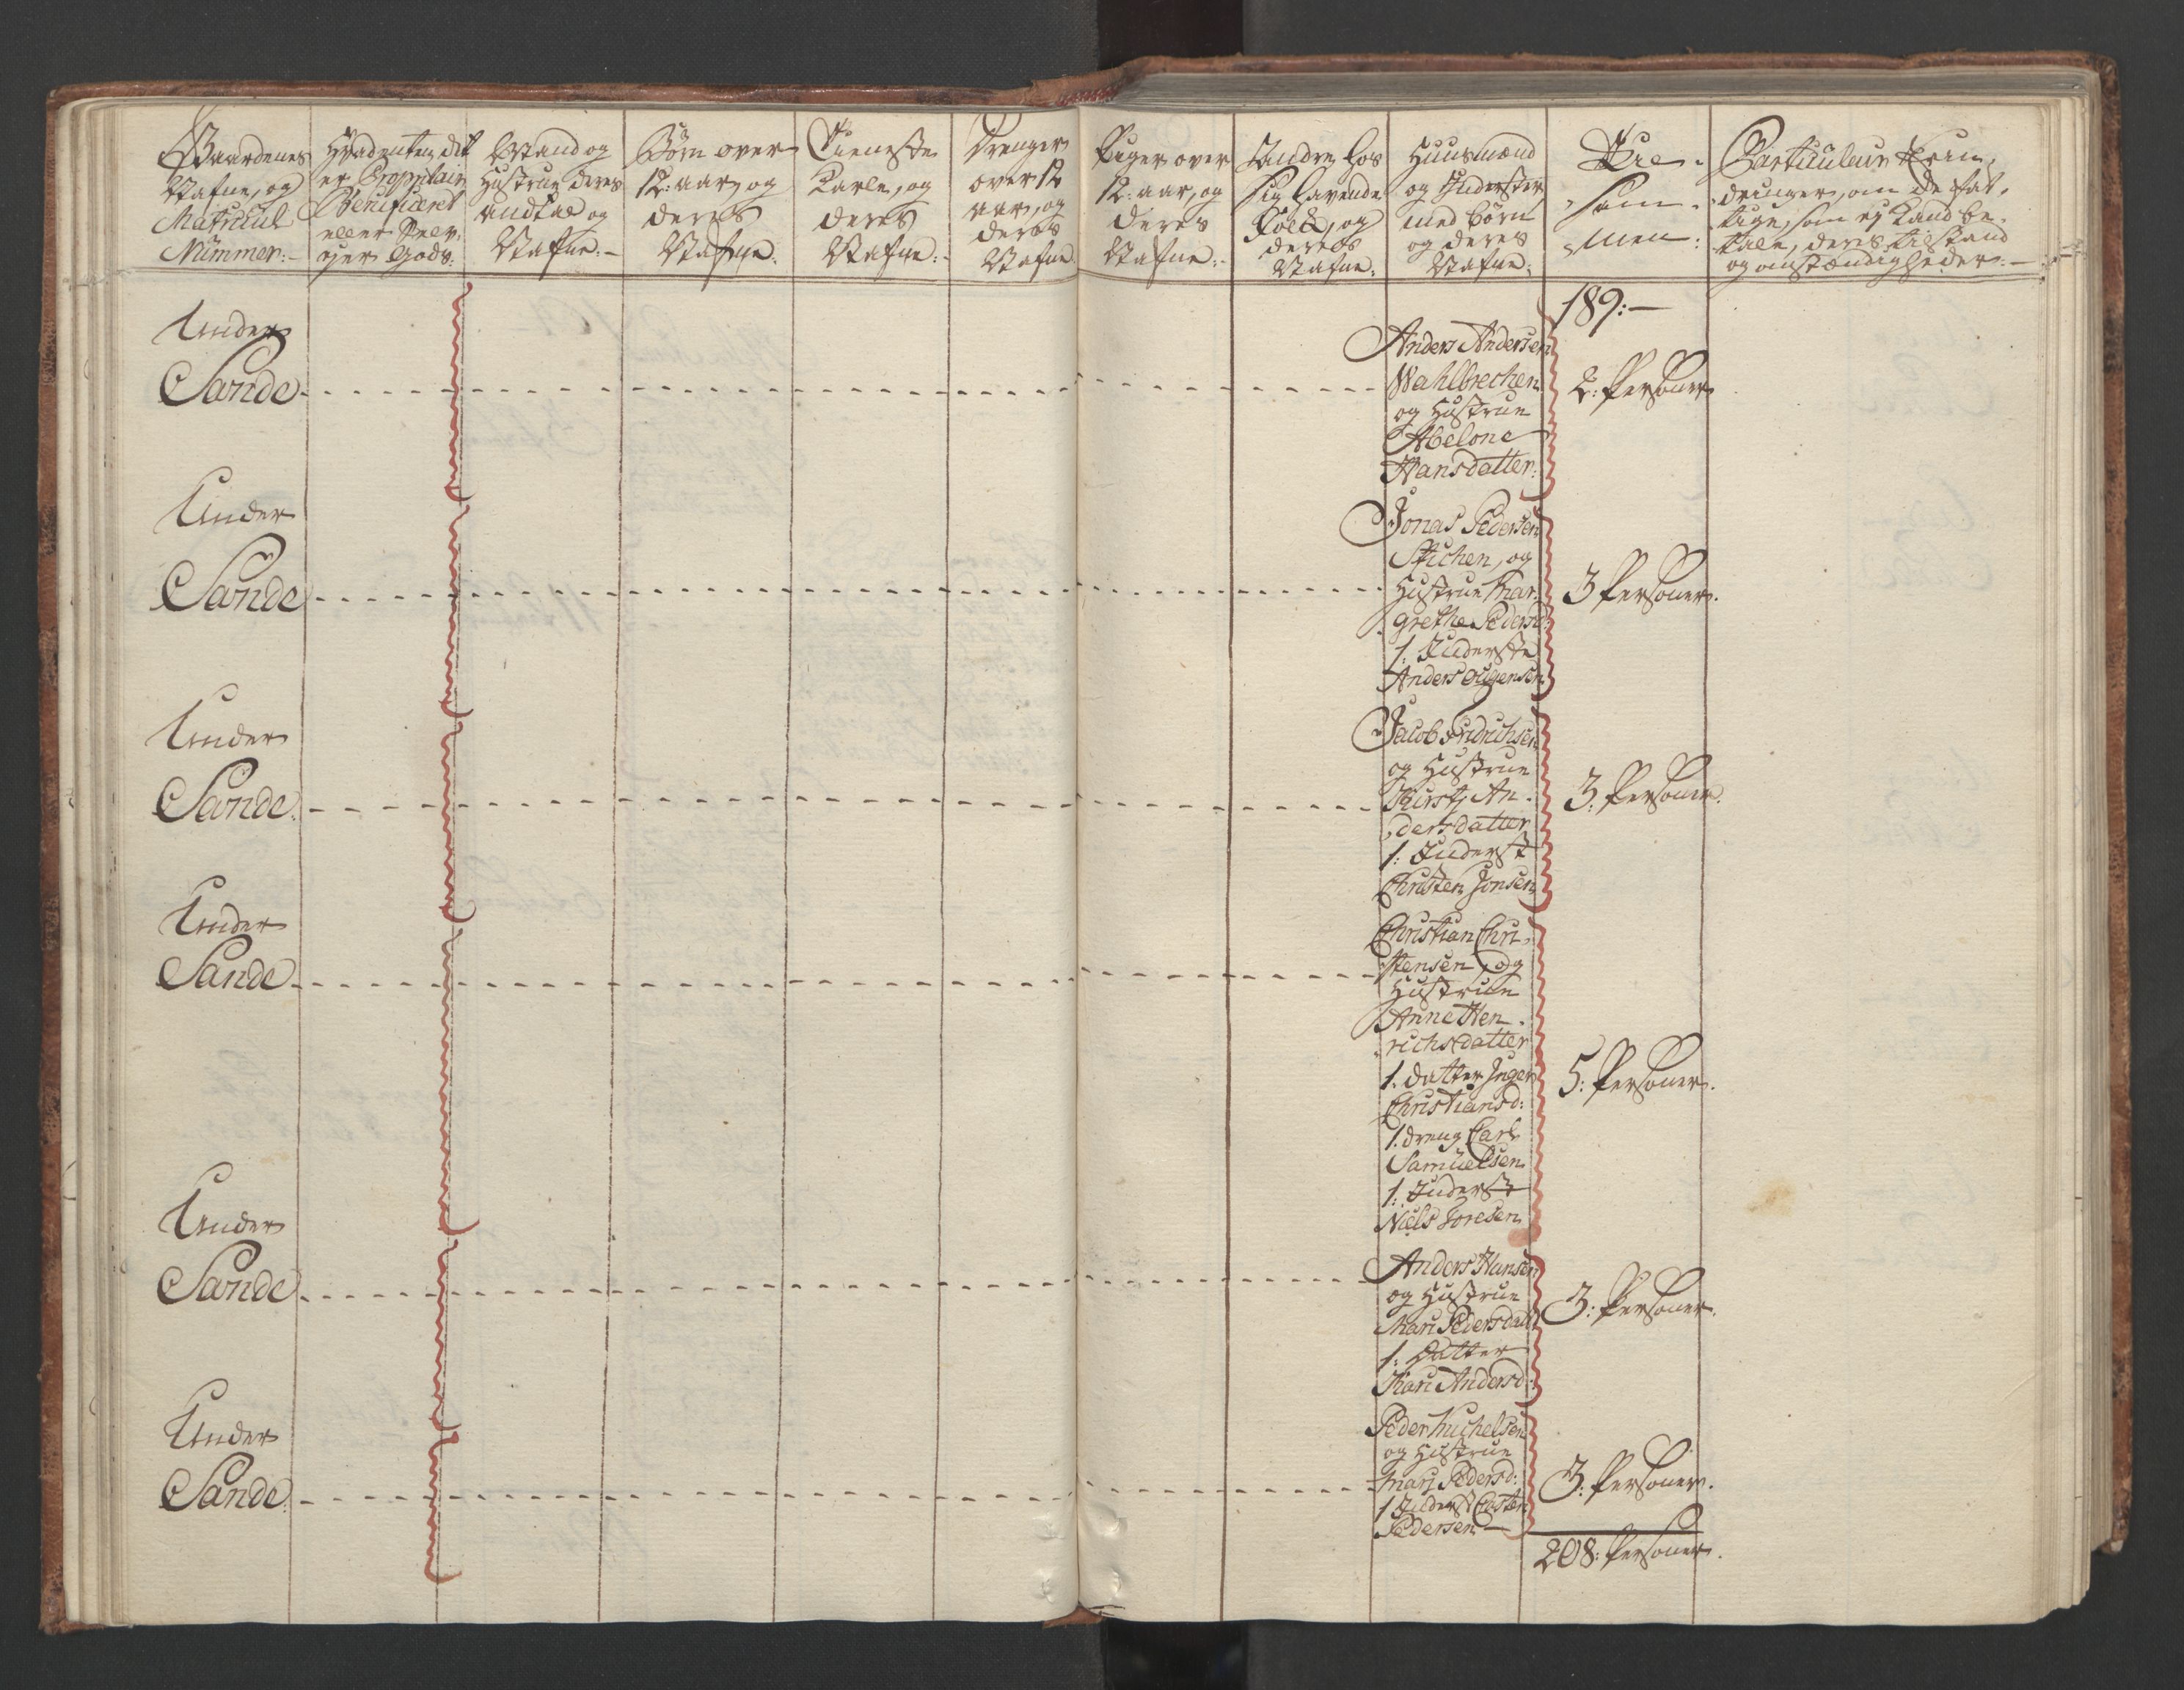 Gaardenes
Nafne, og
Matricul
Nummer:-
Hvad enten det
er Proprietair
Beneficeret
eller Selv-
ejer Gods:
Mand og
Hustrue deres
andtal og
Nafne:-
Børn over
12: aar, og
deres
Nafne.
Tieneste
Karle, og
deres
Nafne:-
Drenger
over 12
aar, og
deres
Nafne
Piger over
12: aar, og
deres
Nafne:-
Andre hos
sig havende
Folk, og
deres
Nafne:
Huusmænd
og Inderster,
med børn
og deres
Nafne:
Til-
sam-
men:
Particulair Erin-
dringer, om de fat-
tige, som ej kand be-
tale, deres tilstand
og omstændigheder:-
189:-
Under
Sande
Anders Andersen
Wahlbrechen
og Hustrue
Abelone
Hansdatter:
2: Personer
Under
Sande
Jonas Pedersen
Stichen, og
Hustrue Mar-
grethe Pedersd:
1: Inderste
Anders
3 Personer.
Under
Sande.
Jacob Fridrichsen
og Hustrue
Kirstj An-
dersdatter
1: Inderst
Christen Jonsen
3: Personer.
Under
Sande
Christian Chri-
stensen, og
Hustrue
Anne Hen-
richsdatter
1. datter Inger
Christiansd:
1. dreng Carl
Samuelsen
1: Inderst
Niels Joresen
5: Personer.
Under
Sande
Anders Hansen
og Hustrue
Mari Pedersdatt
1: Datter
Kari Andersd:
3: Personer.
Under
Sande.
Peder Michelsen
og Hustrue
Marj Pedersd:
1 Inderst Casten
Pedersen
3: Personer.
208: Personer.